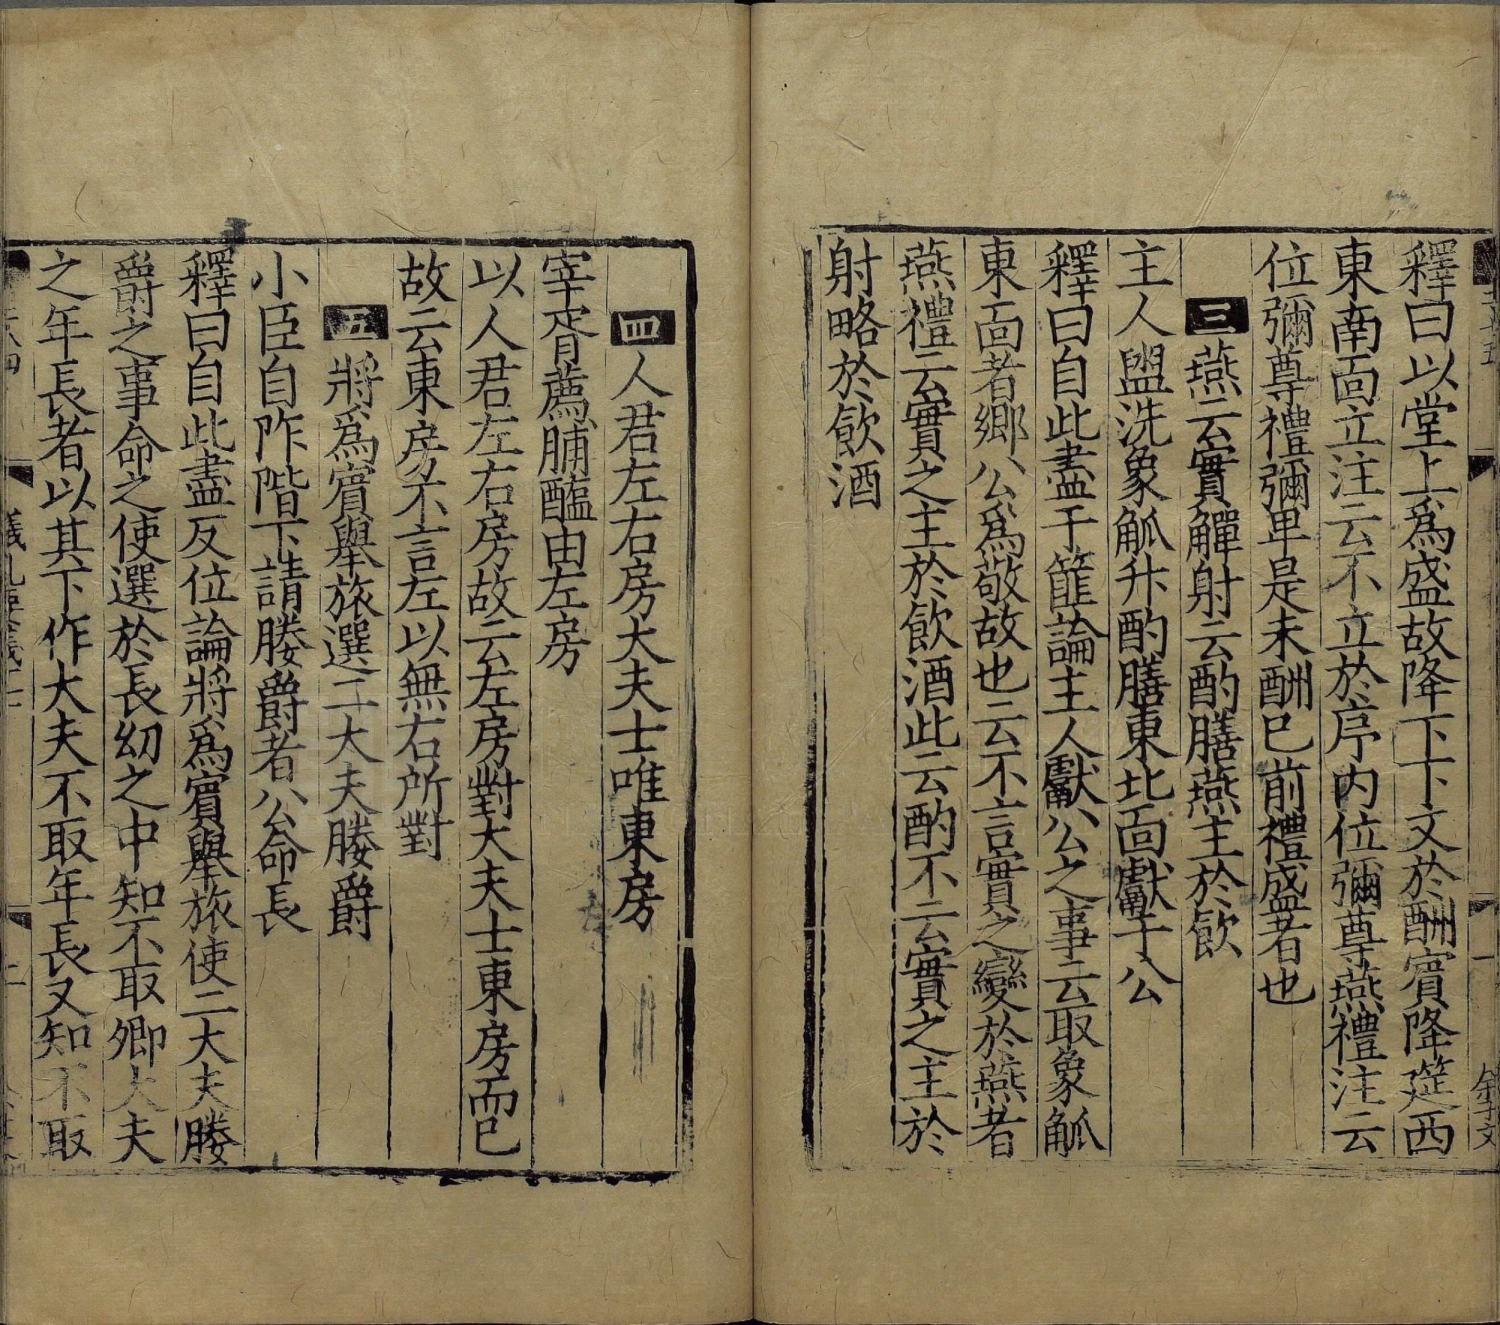 釋曰以堂上爲盛故降下下文於酬賓降筵西
東南面立注云不立於序内位彌尊燕禮注云
位彌尊禮彌卑是未酬巳前禮盛者也
三燕云實觶射云酌膳燕主於飲
主人盥洗象觚升酌膳東北面獻于公
釋曰自此盡于篚論主人獻公之事云取象觚
東面者鄉公爲敬故也云不言實之變於燕者
燕禮云實之主於飲酒此云酌不云實之主於
射略於飲酒
四人君左右房大夫士唯東房
宰胥薦脯醢由左房
以人君左右房故云左房對大夫士東房而巳
故云東房不言左以無右所對
五將爲賓舉旅選二大夫媵爵
小臣自阼階下請媵爵者公命長
釋曰自此盡反位論將爲賓舉旅使二大夫媵
爵之事命之使選於長幼之中知不取卿大夫
之年長者以其下作大夫不取年長又知不取